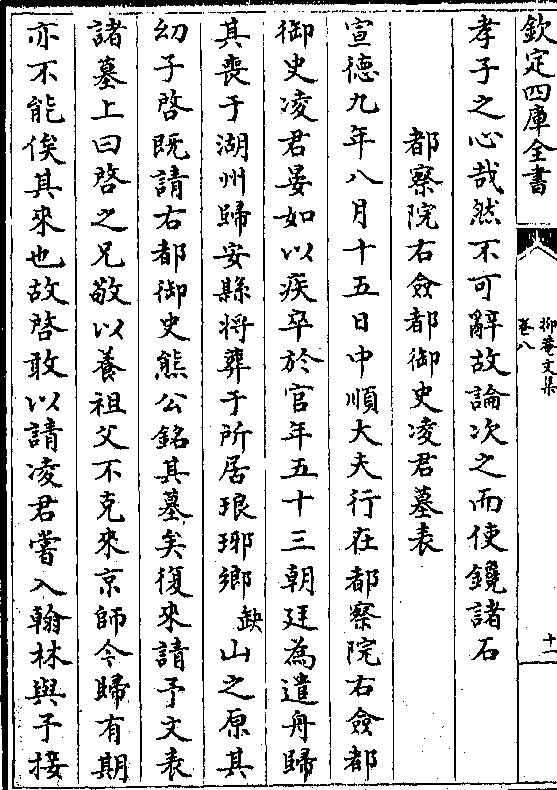 欽定四庫全書
抑菴文集
卷八
十一
孝子之心哉然不可辭故論次之而使鑱諸石
都察院右僉都御史凌君墓表
宣德九年八月十五日中順大夫行在都察院右僉都
御史凌君晏如以疾卒於官年五十三朝廷為遣舟歸
其喪于湖州歸安縣将葬于所居琅琊鄉缺山之原其
幼子啓既請右都御史熊公銘其墓矣復來請予文表
諸墓上曰啓之兄敬以養祖父不克來京師今歸有期
亦不能俟其來也故啓敢以請凌君嘗入翰林與予接